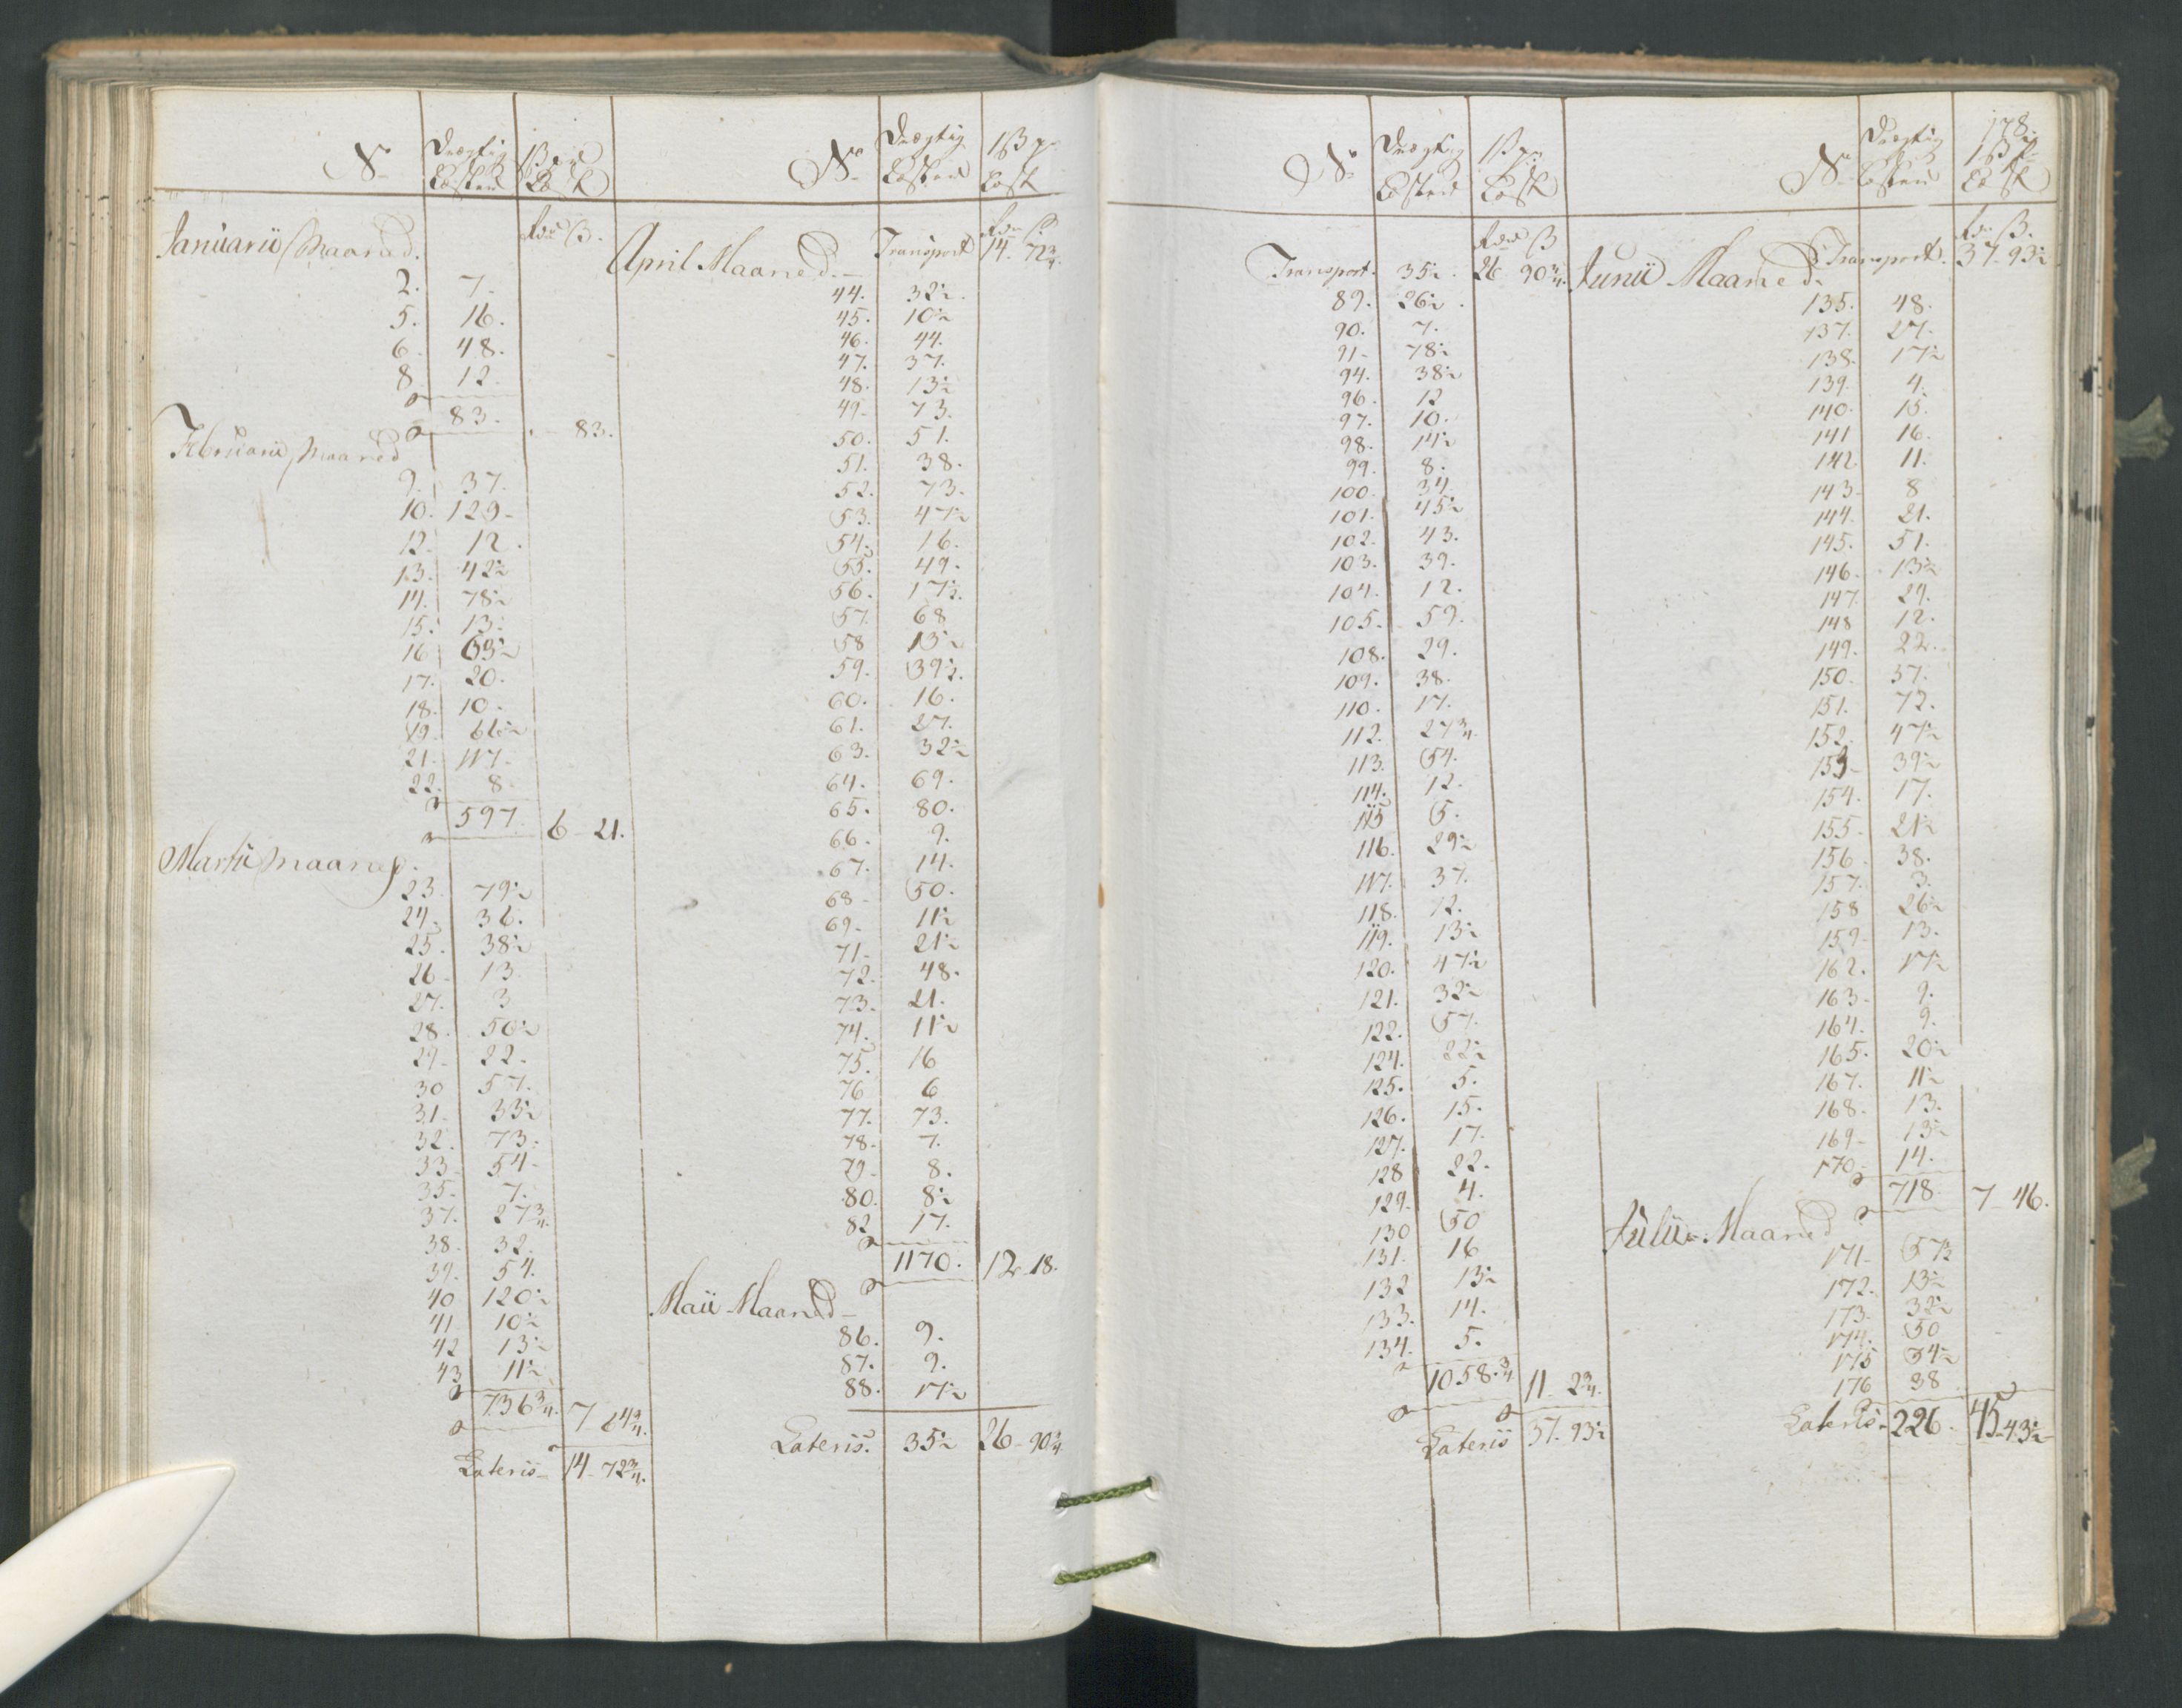 No Drægtig 1ß pr
Læster Læst
Januarii Maaned. Rdr ß.
2. 7.
5. 16.
6. 48.
8. 12.
83. - 83.
Februarii Maaned
9. 37.
10. 129.
12. 12.
13. 42½
14. 78½
15. 13.
16 63½
17. 20.
18. 10.
19. 66½
21. 117.
22. 8.
597. 6 - 21.
Martii Maaned.
23. 79½
24. 36.
25. 38½
26. 13.
27. 3
28. 50½
29. 22.
30 57.
31. 33½
32. 73.
33. 54.
35. 7.
37. 27¾.
38. 32.
39. 54.
40 120½
41. 10½
42 13½
43 11½
736¾. 7 64¾.
Lateris 14 - 72¾.
No Drægtig 1ß pr
Læster Læst
Rdr ß.
April Maaned. Transport 14. 72¾.
44. 32½.
45. 10½
46. 44.
47. 37.
48. 13½
49. 73.
50. 51.
51. 38.
52. 73.
53. 47½
54. 16.
55. 49.
56. 17½.
57. 68
58 13½
59. 39½.
60. 16.
61. 27.
63. 32½
64. 69.
65. 80.
66. 9.
67. 14.
68 50.
69. 11½
71. 21½
72. 48.
73. 21.
74. 11½
75. 16
76 6
77. 73.
78. 7.
79. 8.
80. 8½
82 17.
1170. 12 - 18.
Maii Maaned
86. 9.
87. 9.
88. 17½
Lateris. 35½ 26 - 90¾
No Drægtig 1ß pr
Læster Læst
Rdr ß
Transport. 35½. 26 90¾.
89. 26½.
90. 7.
91. 78½
94. 38½
96. 12
97. 10.
98. 14½
99. 8.
100. 34.
101. 45½
102. 43.
103. 39.
104. 12.
105. 59.
108. 29.
109. 38.
110. 17.
112. 27¾.
113. 54.
114. 12.
115 5.
116. 29½
117. 37.
118. 12.
119. 13½
120. 47½
121. 32½
122. 57.
124. 22½
125. 5.
126. 15.
127. 17.
128 22.
129. 4.
130 50
131. 16
132 13½
133. 14.
134. 5.
1058¾. 11 - 2¾.
Lateris 37. 93½
178.
No Drægtig 1ß pr
Læster Læst
Rdr ß.
Junii Maaned. Transport. 37. 93½
135. 48.
137. 27.
138. 17½
139. 4.
140. 15.
141 16.
142. 11.
143. 8
144. 21.
145. 51.
146. 13½
147. 29.
148 12.
149. 22.
150. 37.
151. 72.
152. 47½
153 39½
154. 17.
155. 21½
156. 38.
157. 3.
158 26½
159. 13.
162. 17½
163. 9.
164. 9.
165. 20½
167. 11½
168. 13.
169. 13½
170. 14.
718. 7 - 46.
Julii Maaned
171. 57½
172. 13½
173. 32½
174. 50
175 34½
176 38
Lateris 226. 45 - 43½